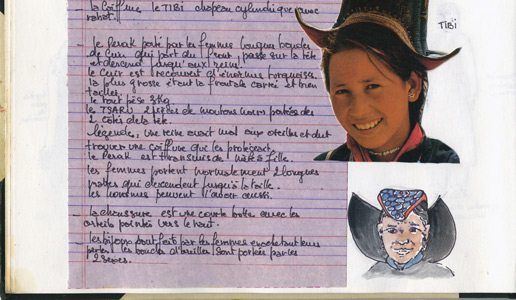 _ la coiffure le TIBI chapeau cylindrique avec
rabat.
_ le Perak porté par les femmes longue bandes
de cuir qui part du front, passe sur la tête
et descend jusqu'aux reins.
le cuir est recouvert d'énormes turquoises.
la plus grosse étant la frontale carrée et bien
taillée.
le tout pèse 3kg.
le TSARU 2 pièces de moutons noirs portées des
2 côtés de la tête.
légende, une reine avait mal aux oreilles et dut
trouver une coiffure qui les protègeait.
le Perak est transmis de mère à fille.
les femmes portent normalement 2 longues
nattes qui descendent jusqu'à la taille.
les hommes peuvent l'avoir aussi.
_ la chaussure est une courte botte avec les
orteils pointés vers le haut.
_ les bijoux sont faits par les femmes
perles les boucles d'oreilles sont portées par les
2 sexes.
TIBi